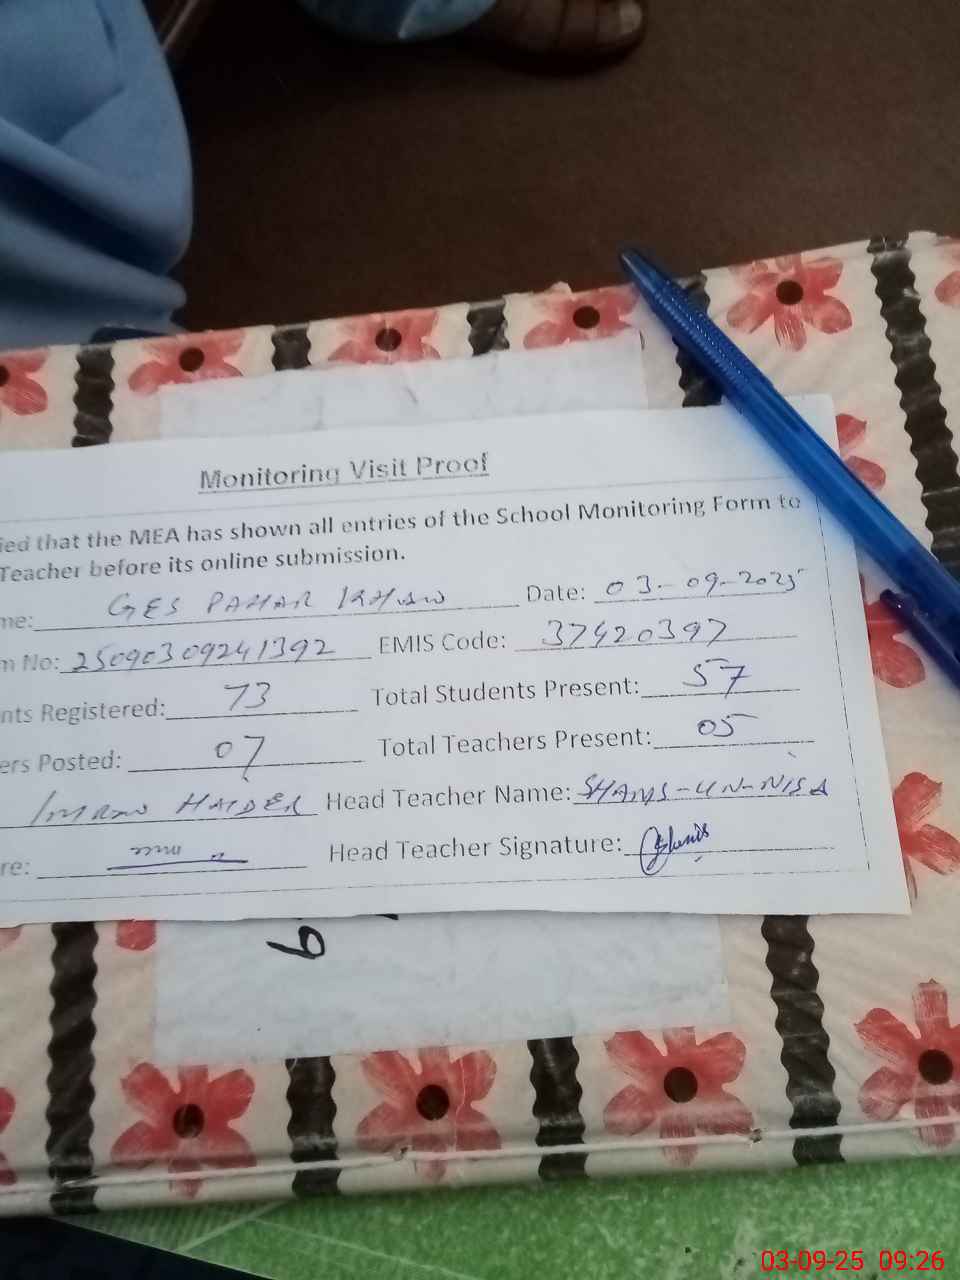 Monitoring Visit Proof
ied that the MEA has shown all entries of the School Monitoring Form to
Teacher before its online submission.
me: GES PAHAR KHAN Date: 03-09-2025
m No: 25090309241392 EMIS Code: 37420397
nts Registered: 73 Total Students Present: 57
ers Posted: 07 Total Teachers Present: 05
IMRAN HAIDER Head Teacher Name: SHAMS-UN-NISA
re: Head Teacher Signature:
9
03-09-25 09:26